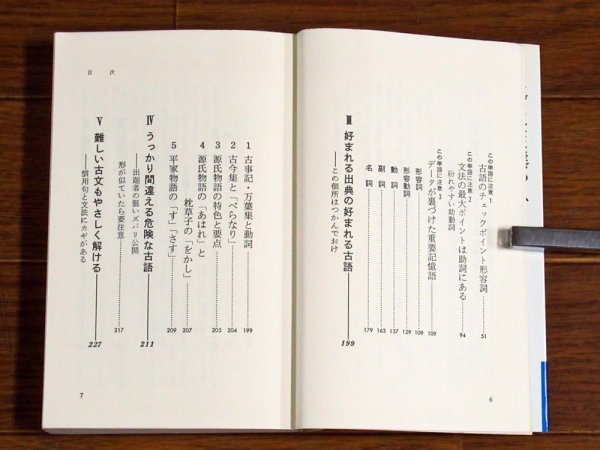 この単語に注意 1
古語のチェックポイント形容詞 51
この単語に注意 2
文法の最大ポイントは助詞にある 94
紛れやすい助動詞
この単語に注意 3
データが裏づけた重要記憶語 109
形容詞 109
形容動詞 129
動詞 137
副詞 163
名詞 179
Ⅲ 好まれる出典の好まれる古語 199
──この個所はつかんでおけ
6
目次
1 古事記・万葉集と動詞 199
2 古今集と「べらなり」 204
3 源氏物語の特色と要点 205
4 源氏物語の「あはれ」と
枕草子の「をかし」 207
5 平家物語の「す」「さす」 209
Ⅳ うっかり間違える危険な古語 211
──出題者の狙いズバリ公開
形が似ていたら要注意 217
Ⅴ 難しい古文もやさしく解ける 227
──慣用句と文法にカギがある
7